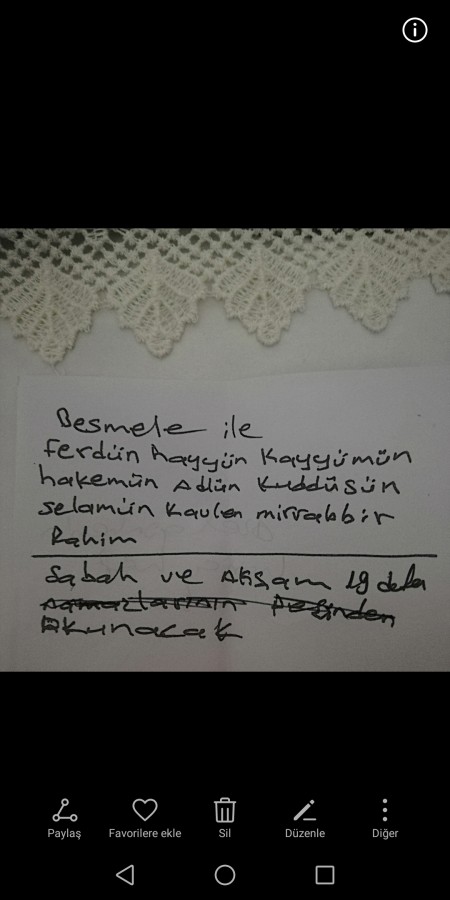 Besmele ile
ferdün hayyün Kayyümün
hakemün Adlün Kuddüsün
selamün kavlen mirrabbir
Rahim
Sabah ve Akşam 19 defa
namazlarının peşinden
Okunacak
Paylaş
Favorilere ekle
Sil
Düzenle
Diğer